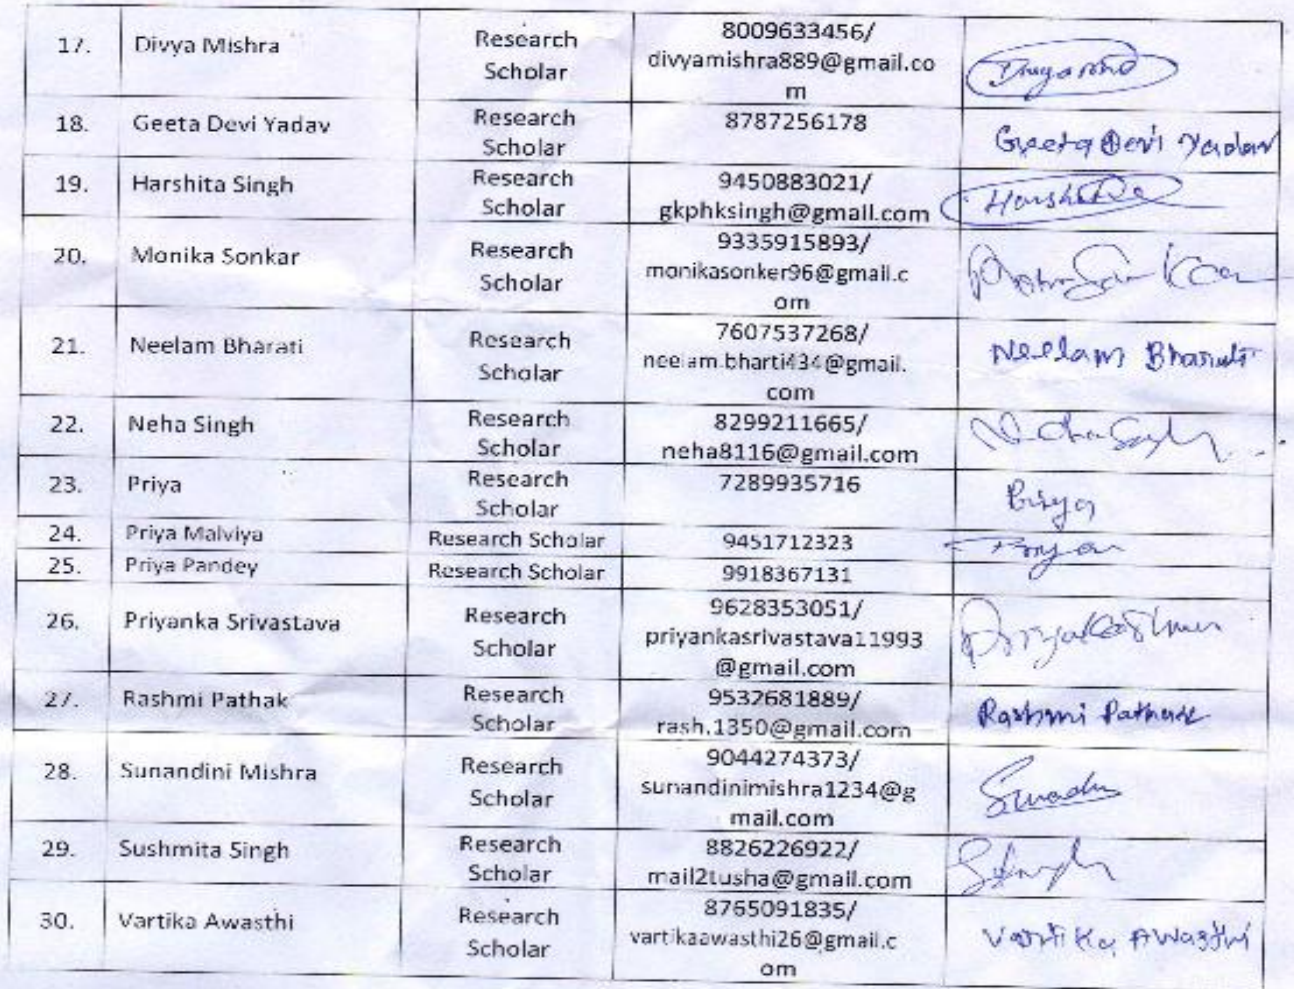 17. Divya Mishra Research Scholar 8009633456/ divyamishra889@gmail.co m
18. Geeta Devi Yadav Research Scholar 8787256178 Geeta Devi Yadav
19. Harshita Singh Research Scholar 9450883021/ gkphksingh@gmail.com Harshita
20. Monika Sonkar Research Scholar 9335915893/ monikasonker96@gmail.c om
21. Neelam Bharati Research Scholar 7607537268/ neelam.bharti434@gmail. com Neelam Bharati
22. Neha Singh Research Scholar 8299211665/ neha8116@gmail.com Neha Singh
23. Priya Research Scholar 7289935716 Priya
24. Priya Malviya Research Scholar 9451712323 Priya
25. Priya Pandey Research Scholar 9918367131
26. Priyanka Srivastava Research Scholar 9628353051/ priyankasrivastava11993 @gmail.com
27. Rashmi Pathak Research Scholar 9532681889/ rash.1350@gmail.com Rashmi Pathak
28. Sunandini Mishra Research Scholar 9044274373/ sunandinimishra1234@g mail.com
29. Sushmita Singh Research Scholar 8826226922/ mail2tusha@gmail.com
30. Vartika Awasthi Research Scholar 8765091835/ vartikaawasthi26@gmail.c om Vartika Awasthi